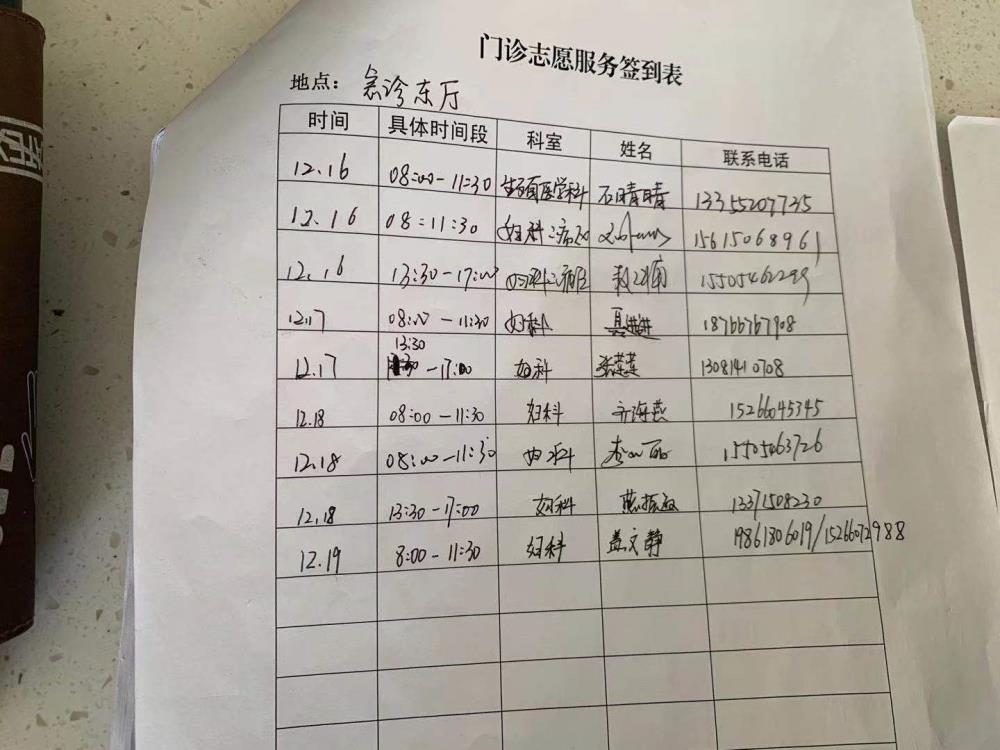 门诊志愿服务签到表
地点：急诊东厅
时间 具体时间段 科室 姓名 联系电话
12.16 08:00-11:30 生殖医学科 石晴晴 13355207735
12.16 08:11:30 妇科 15615068961
12.16 13:30-17:00 妇科 15505462299
12.17 08:00-11:30 妇科 18766767908
12.17 13:30-17:00 妇科 张莲莲 13081410708
12.18 08:00-11:30 妇科 齐海燕 15266045345
12.18 08:00-11:30 妇科 15505463726
12.18 13:30-17:00 妇科 13371508230
12.19 8:00-11:30 妇科 盖文静 19861806019/15266072988